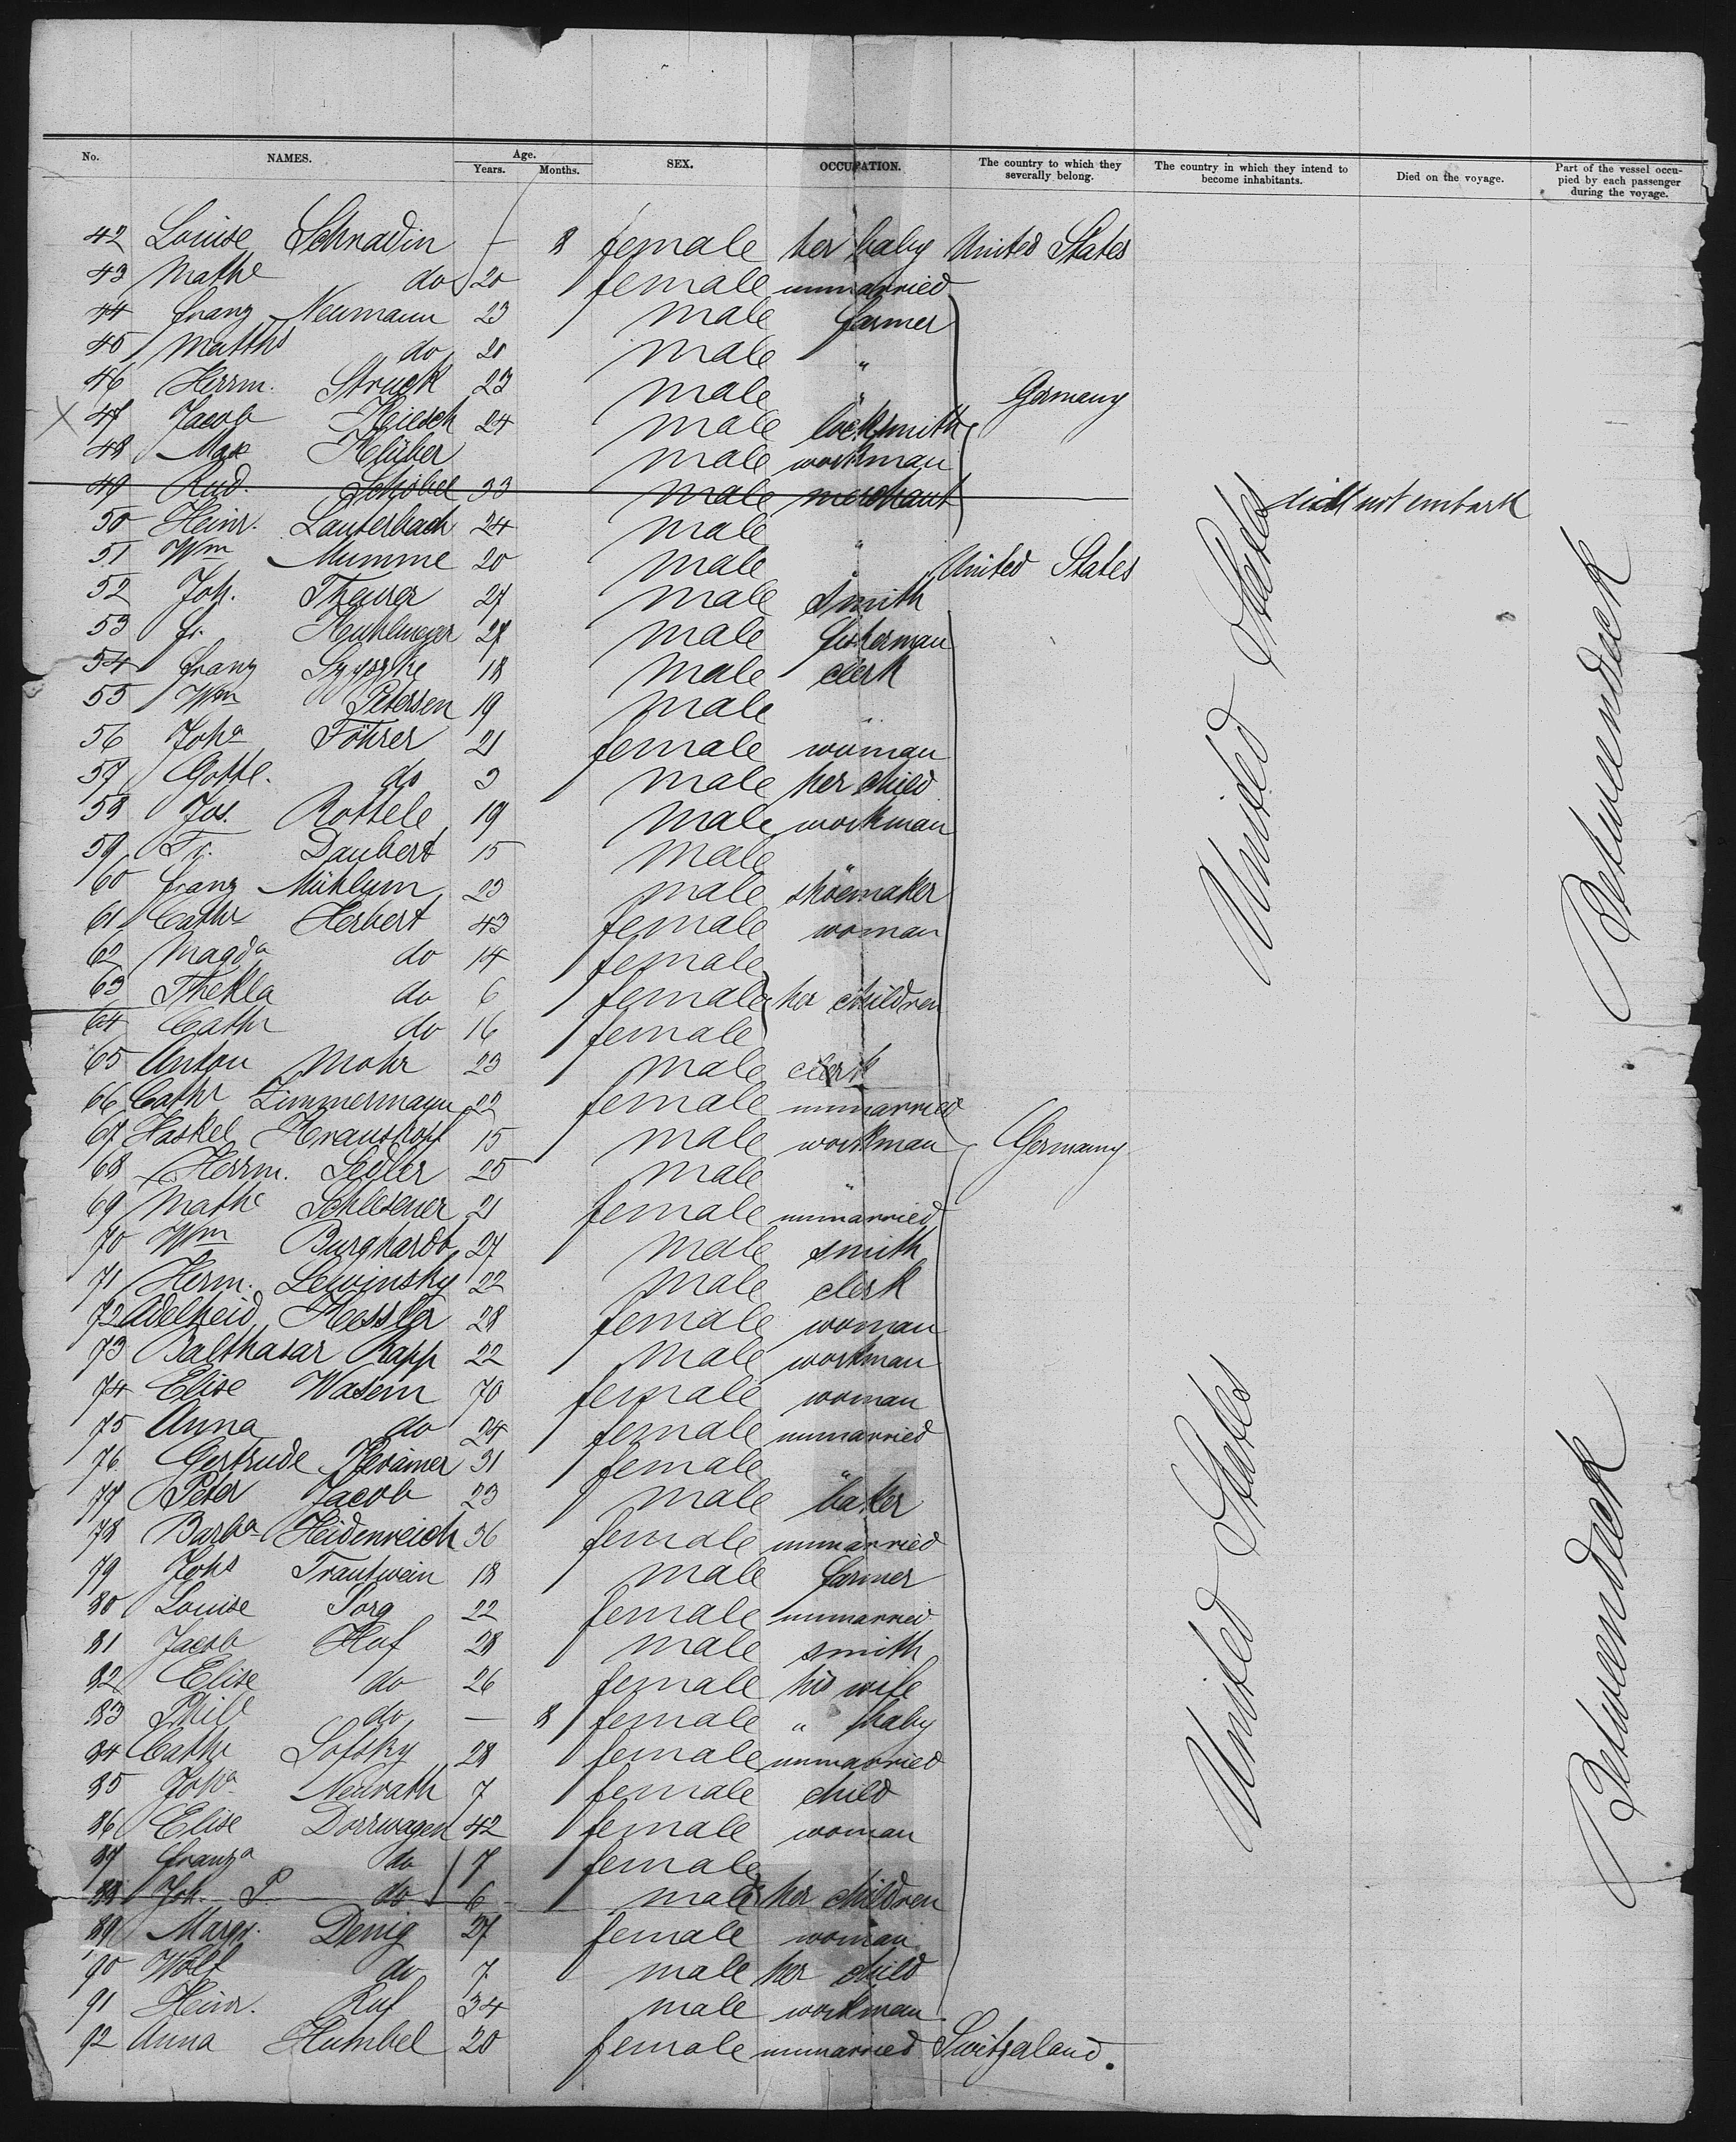 No. NAMES. Age. Years. Months. SEX. OCCUPATION. The country to which they severally belong. The country in which they intend to become inhabitants. Died on the voyage. Part of the vessel occupied by each passenger during the voyage.
42 Louise Schradin — 8 female her baby United States
43 Mathe do 20 female unmarried
44 Franz Neumann 23 male farmer
45 Matths do 20 male "
46 Herrm. Struck 23 male " Germany
47 Jacob 24 male locksmith
48 Max Klüber male workman
49 Rud. Schöbel 33 male merchant did not embark
50 Heinr. Lauterbach 24 male "
51 Wm Mumme 20 male " United States
52 Joh. Theurer 27 male smith
53 Fr. Kuhlmeyer 27 male fisherman
54 Franz 18 male clerk
55 Wm Petersen 19 male "
56 Joha Föhrer 21 female woman
57 Gottl. do 3 male her child
58 Jos. Rottele 19 male workman
59 Fr. Daubert 15 male "
60 Franz Mühlum 23 male shoemaker
61 Cathr Herbert 43 female woman
62 Magda do 14 female
63 Thekla do 6 female her children
64 Cathr do 16 female
65 Anton Mohr 23 male clerk
66 Cathr Zimmermann 22 female unmarried
67 Haskel Krauskopf 15 male workman Germany
68 Herrm. Sedler 25 male "
69 Mathe Schlesener 21 female unmarried
70 Wm Burghardt 27 male smith
71 Herm. Lewinsky 22 male clerk
72 Adelheid Kessler 28 female woman
73 Balthasar Rapp 22 male workman
74 Elise Wasem 70 female woman
75 Anna do 24 female unmarried
76 Gertrude Krämer 31 female "
77 Peter Jacob 23 male baker
78 Barba Heidenreich 36 female unmarried
79 Johs Trautwein 18 male farmer
80 Louise Sorg 22 female unmarried
81 Jacob Huf 28 male smith
82 Elise do 26 female his wife
83 Phil do — 8 female " baby
84 Cathr Sofsky 28 female unmarried
85 Joha Neurath 7 female child
86 Elise Dorrwagen 42 female woman
87 Franza do 7 female
88 Joh. P. do 6 male her children
89 Margr. Denig 27 female woman
90 Wolf do 7 male her child
91 Heinr. Ruf 34 male workman
92 Anna Humbel 20 female unmarried Switzaland.
United States
Betweendeck
United States
Betweendeck